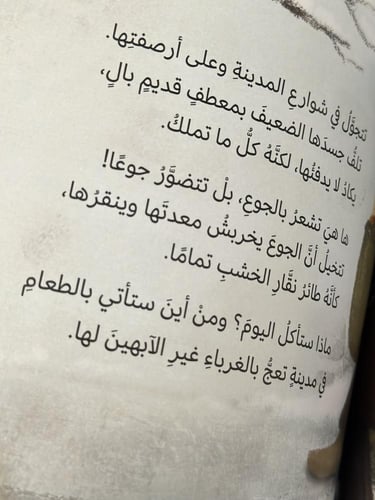 تتجوَّلُ في شوارعِ المدينةِ وعلى أرصفتِها.
تلفُّ جسدَها الضعيفَ بمعطفٍ قديمٍ بالٍ،
يكادُ لا يدفئُها، لكنَّهُ كلُّ ما تملكُ.
ها هيَ تشعرُ بالجوعِ، بلْ تتضوَّرُ جوعًا!
تتخيلُ أنَّ الجوعَ يخربشُ معدتَها وينقرُها،
كأنَّهُ طائرُ نقَّارِ الخشبِ تمامًا.
ماذا ستأكلُ اليومَ؟ ومنْ أينَ ستأتي بالطعامِ
في مدينةٍ تعجُّ بالغرباءِ غيرِ الآبهينَ لها.